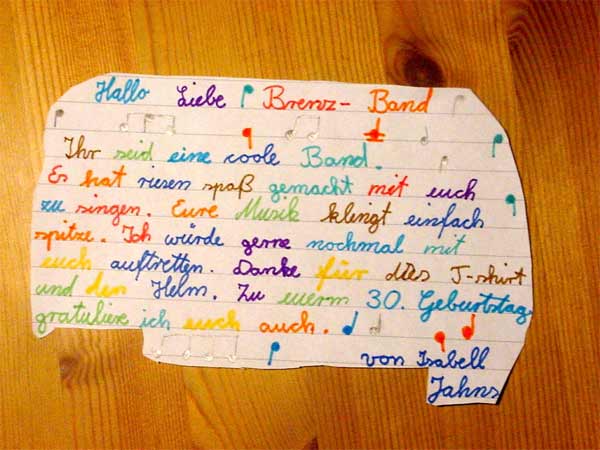 Hallo Liebe Brenz-Band
Ihr seid eine coole Band.
Es hat riesen spaß gemacht mit euch
zu singen. Eure Musik klingt einfach
spitze. Ich würde gerne nochmal mit
euch auftretten. Danke für das T-shirt
und den Helm. Zu euerm 30. Geburtstag
gratuliere ich euch auch.
von Isabell
Jahns